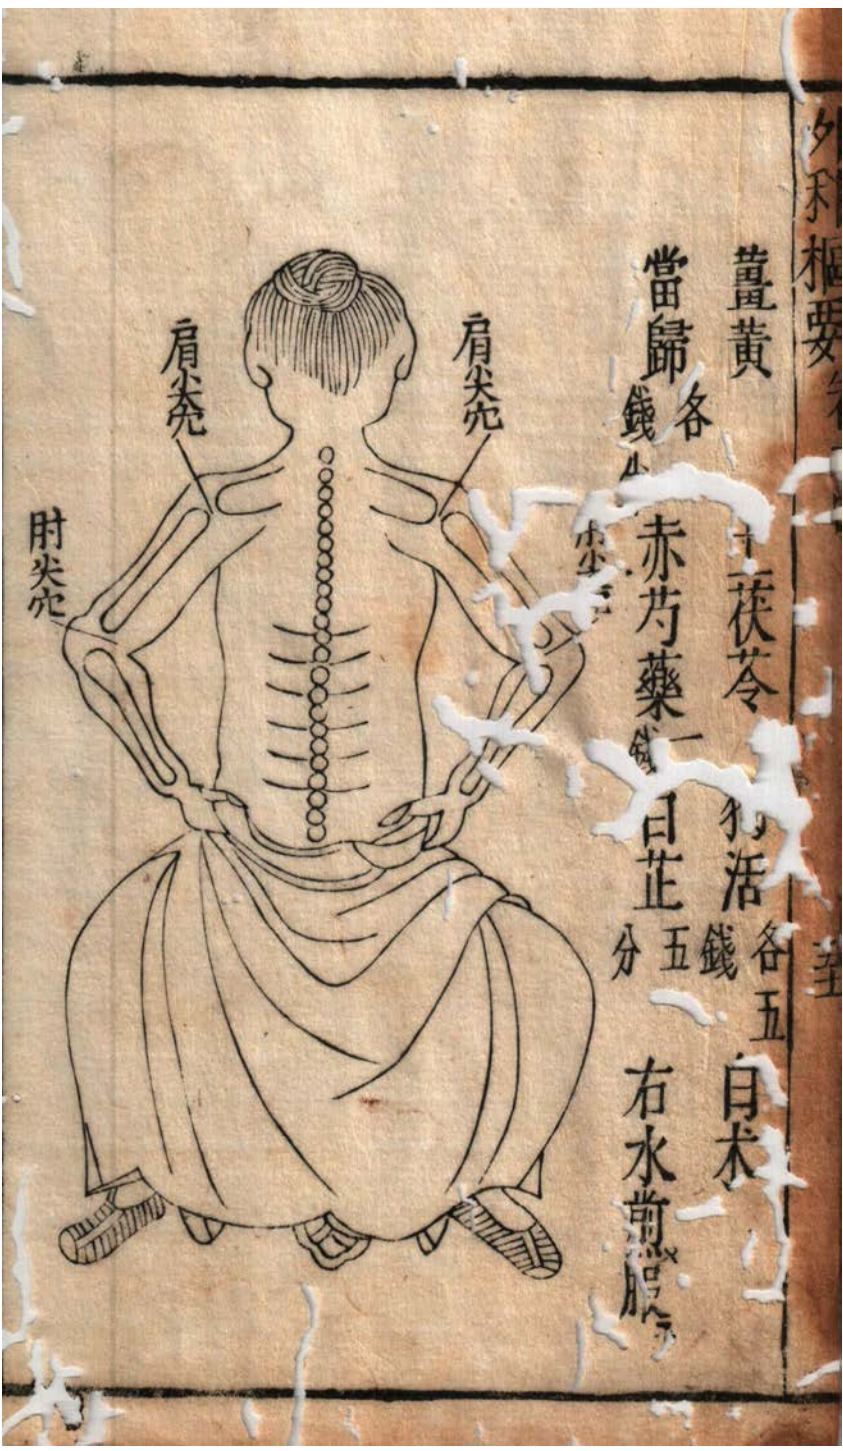 外科樞要
薑黃 茯苓 活各五錢 白术
當歸各錢 赤芍藥一錢 白芷五分 右水煎服
肩尖穴
肩尖穴
肘尖穴